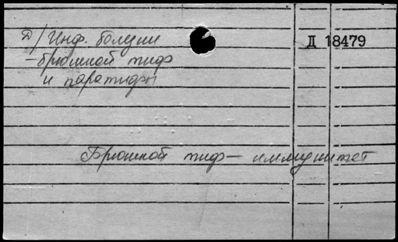 Д/ Инф. болезни
Д 18479
-брюшной тиф
и паратифы
Брюшной тиф - иммунитет